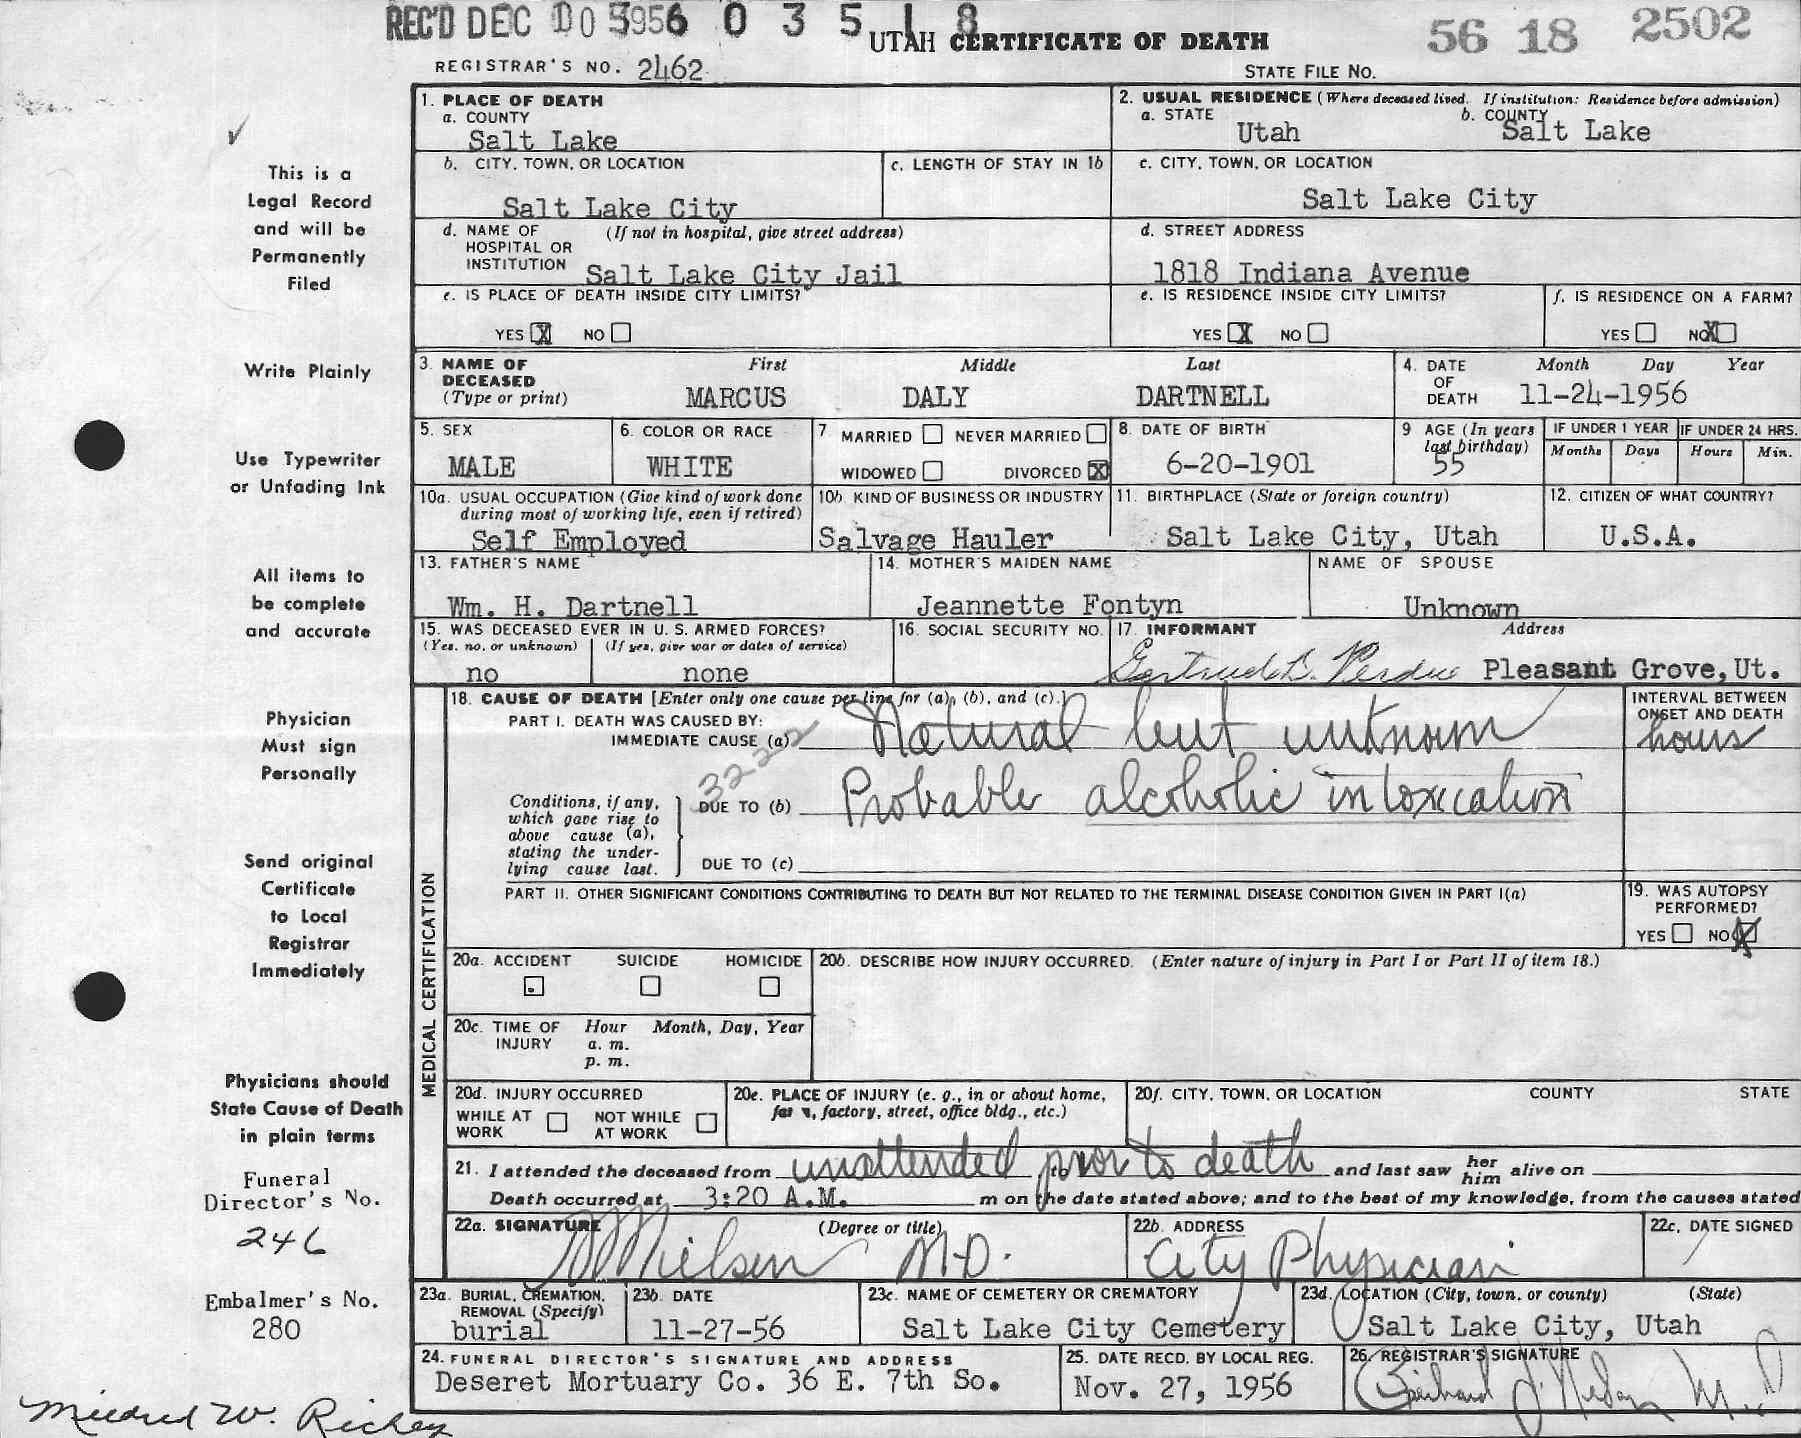 REC'D DEC 1956 0 3 5 1 8
UTAH CERTIFICATE OF DEATH
56 18 2502
REGISTRAR'S NO. 2462
STATE FILE NO.
This is a
Legal Record
and will be
Permanently
Filed
Write Plainly
Use Typewriter
or Unfading Ink
All items to
be complete
and accurate
Physician
Must sign
Personally
Send original
Certificate
to Local
Registrar
Immediately
Physicians should
State Cause of Death
in plain terms
Funeral
Director's No.
246
Embalmer's No.
280
Mildred W. Richey
1. PLACE OF DEATH
a. COUNTY
Salt Lake
2. USUAL RESIDENCE (Where deceased lived. If institution: Residence before admission)
a. STATE Utah b. COUNTY Salt Lake
b. CITY, TOWN, OR LOCATION
Salt Lake City
c. LENGTH OF STAY IN 1b
c. CITY, TOWN, OR LOCATION
Salt Lake City
d. NAME OF (If not in hospital, give street address)
HOSPITAL OR
INSTITUTION Salt Lake City Jail
d. STREET ADDRESS
1818 Indiana Avenue
e. IS PLACE OF DEATH INSIDE CITY LIMITS?
YES X NO
e. IS RESIDENCE INSIDE CITY LIMITS?
YES X NO
f. IS RESIDENCE ON A FARM?
YES NO X
3. NAME OF DECEASED (Type or print)
First Middle Last
MARCUS DALY DARTNELL
4. DATE OF DEATH
Month Day Year
11-24-1956
5. SEX
MALE
6. COLOR OR RACE
WHITE
7 MARRIED NEVER MARRIED
WIDOWED DIVORCED X
8. DATE OF BIRTH
6-20-1901
9 AGE (In years last birthday)
55
IF UNDER 1 YEAR
Months Days
IF UNDER 24 HRS.
Hours Min.
10a. USUAL OCCUPATION (Give kind of work done
during most of working life, even if retired)
Self Employed
10b KIND OF BUSINESS OR INDUSTRY
Salvage Hauler
11. BIRTHPLACE (State or foreign country)
Salt Lake City, Utah
12. CITIZEN OF WHAT COUNTRY?
U.S.A.
13. FATHER'S NAME
Wm. H. Dartnell
14. MOTHER'S MAIDEN NAME
Jeannette Fontyn
NAME OF SPOUSE
Unknown
15. WAS DECEASED EVER IN U. S. ARMED FORCES?
(Yes, no, or unknown) (If yes, give war or dates of service)
no none
16. SOCIAL SECURITY NO.
17. INFORMANT Address
Gertrude D. Perdue Pleasant Grove, Ut.
MEDICAL CERTIFICATION
18. CAUSE OF DEATH [Enter only one cause per line for (a), (b), and (c).]
PART I. DEATH WAS CAUSED BY:
IMMEDIATE CAUSE (a) Natural but unknown
INTERVAL BETWEEN
ONSET AND DEATH
hours
Conditions, if any,
which gave rise to
above cause (a),
stating the under-
lying cause last.
DUE TO (b) Probable alcoholic intoxication
DUE TO (c)
PART II. OTHER SIGNIFICANT CONDITIONS CONTRIBUTING TO DEATH BUT NOT RELATED TO THE TERMINAL DISEASE CONDITION GIVEN IN PART I(a)
19. WAS AUTOPSY
PERFORMED?
YES NO X
20a. ACCIDENT SUICIDE HOMICIDE
20b. DESCRIBE HOW INJURY OCCURRED. (Enter nature of injury in Part I or Part II of item 18.)
20c. TIME OF INJURY Hour Month, Day, Year
a. m.
p. m.
20d. INJURY OCCURRED
WHILE AT WORK NOT WHILE AT WORK
20e. PLACE OF INJURY (e. g., in or about home,
farm, factory, street, office bldg., etc.)
20f. CITY, TOWN, OR LOCATION COUNTY STATE
21. I attended the deceased from unattended prior to death to and last saw her him alive on
Death occurred at 3:20 A.M. m on the date stated above; and to the best of my knowledge, from the causes stated
22a. SIGNATURE (Degree or title)
Nielsen M.D.
22b. ADDRESS
City Physician
22c. DATE SIGNED
23a. BURIAL, CREMATION,
REMOVAL (Specify)
burial
23b. DATE
11-27-56
23c. NAME OF CEMETERY OR CREMATORY
Salt Lake City Cemetery
23d. LOCATION (City, town, or county) (State)
Salt Lake City, Utah
24. FUNERAL DIRECTOR'S SIGNATURE AND ADDRESS
Deseret Mortuary Co. 36 E. 7th So.
25. DATE RECD. BY LOCAL REG.
Nov. 27, 1956
26. REGISTRAR'S SIGNATURE